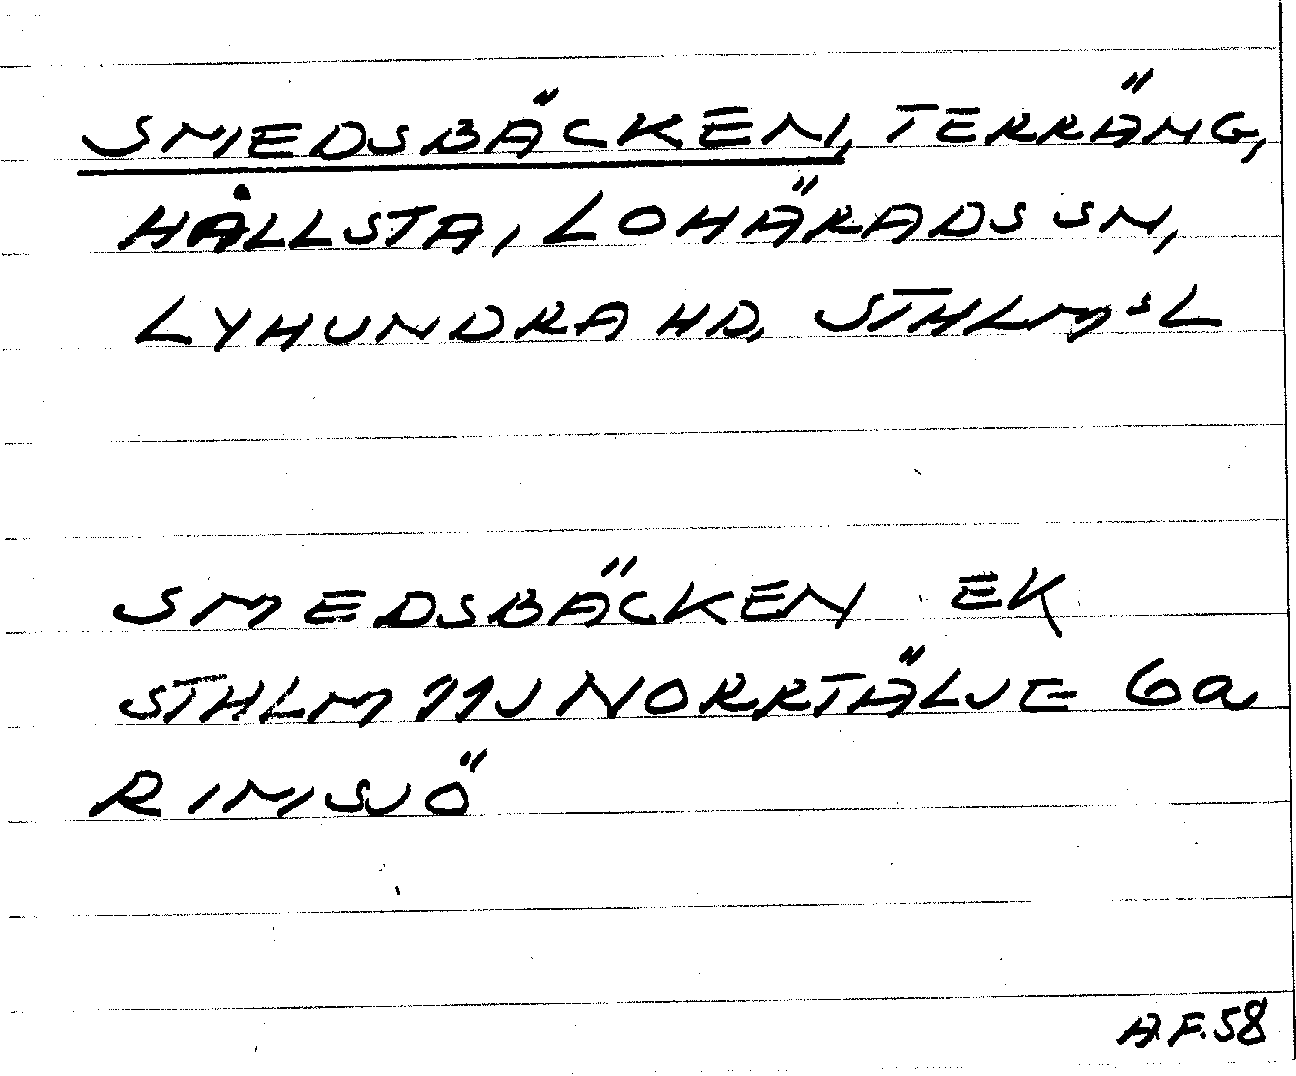 SMEDSBÄCKEN, TERRÄNG,
HÅLLSTA, LOHÄRADS SN,
LYHUNDRA HD, STHLMS L
SMEDSBÄCKEN EK
STHLM 11J NORRTÄLJE 6a
RIMSJÖ
A.F. 58